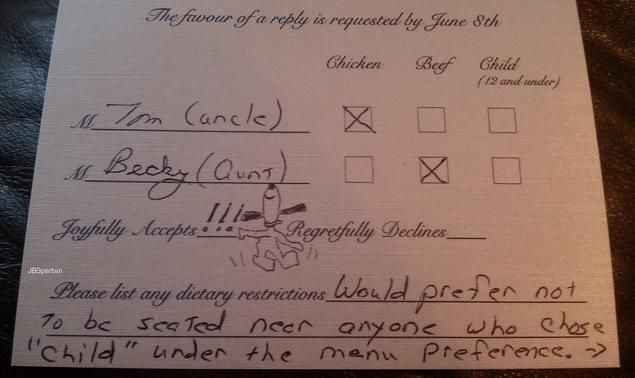 The favour of a reply is requested by June 8th
Chicken Beef Child
(12 and under)
M Tom (uncle)
M Becky (Aunt)
Joyfully Accepts !!! Regretfully Declines
JBSperber
Please list any dietary restrictions Would prefer not
to be seated near anyone who chose
"child" under the menu preference. →